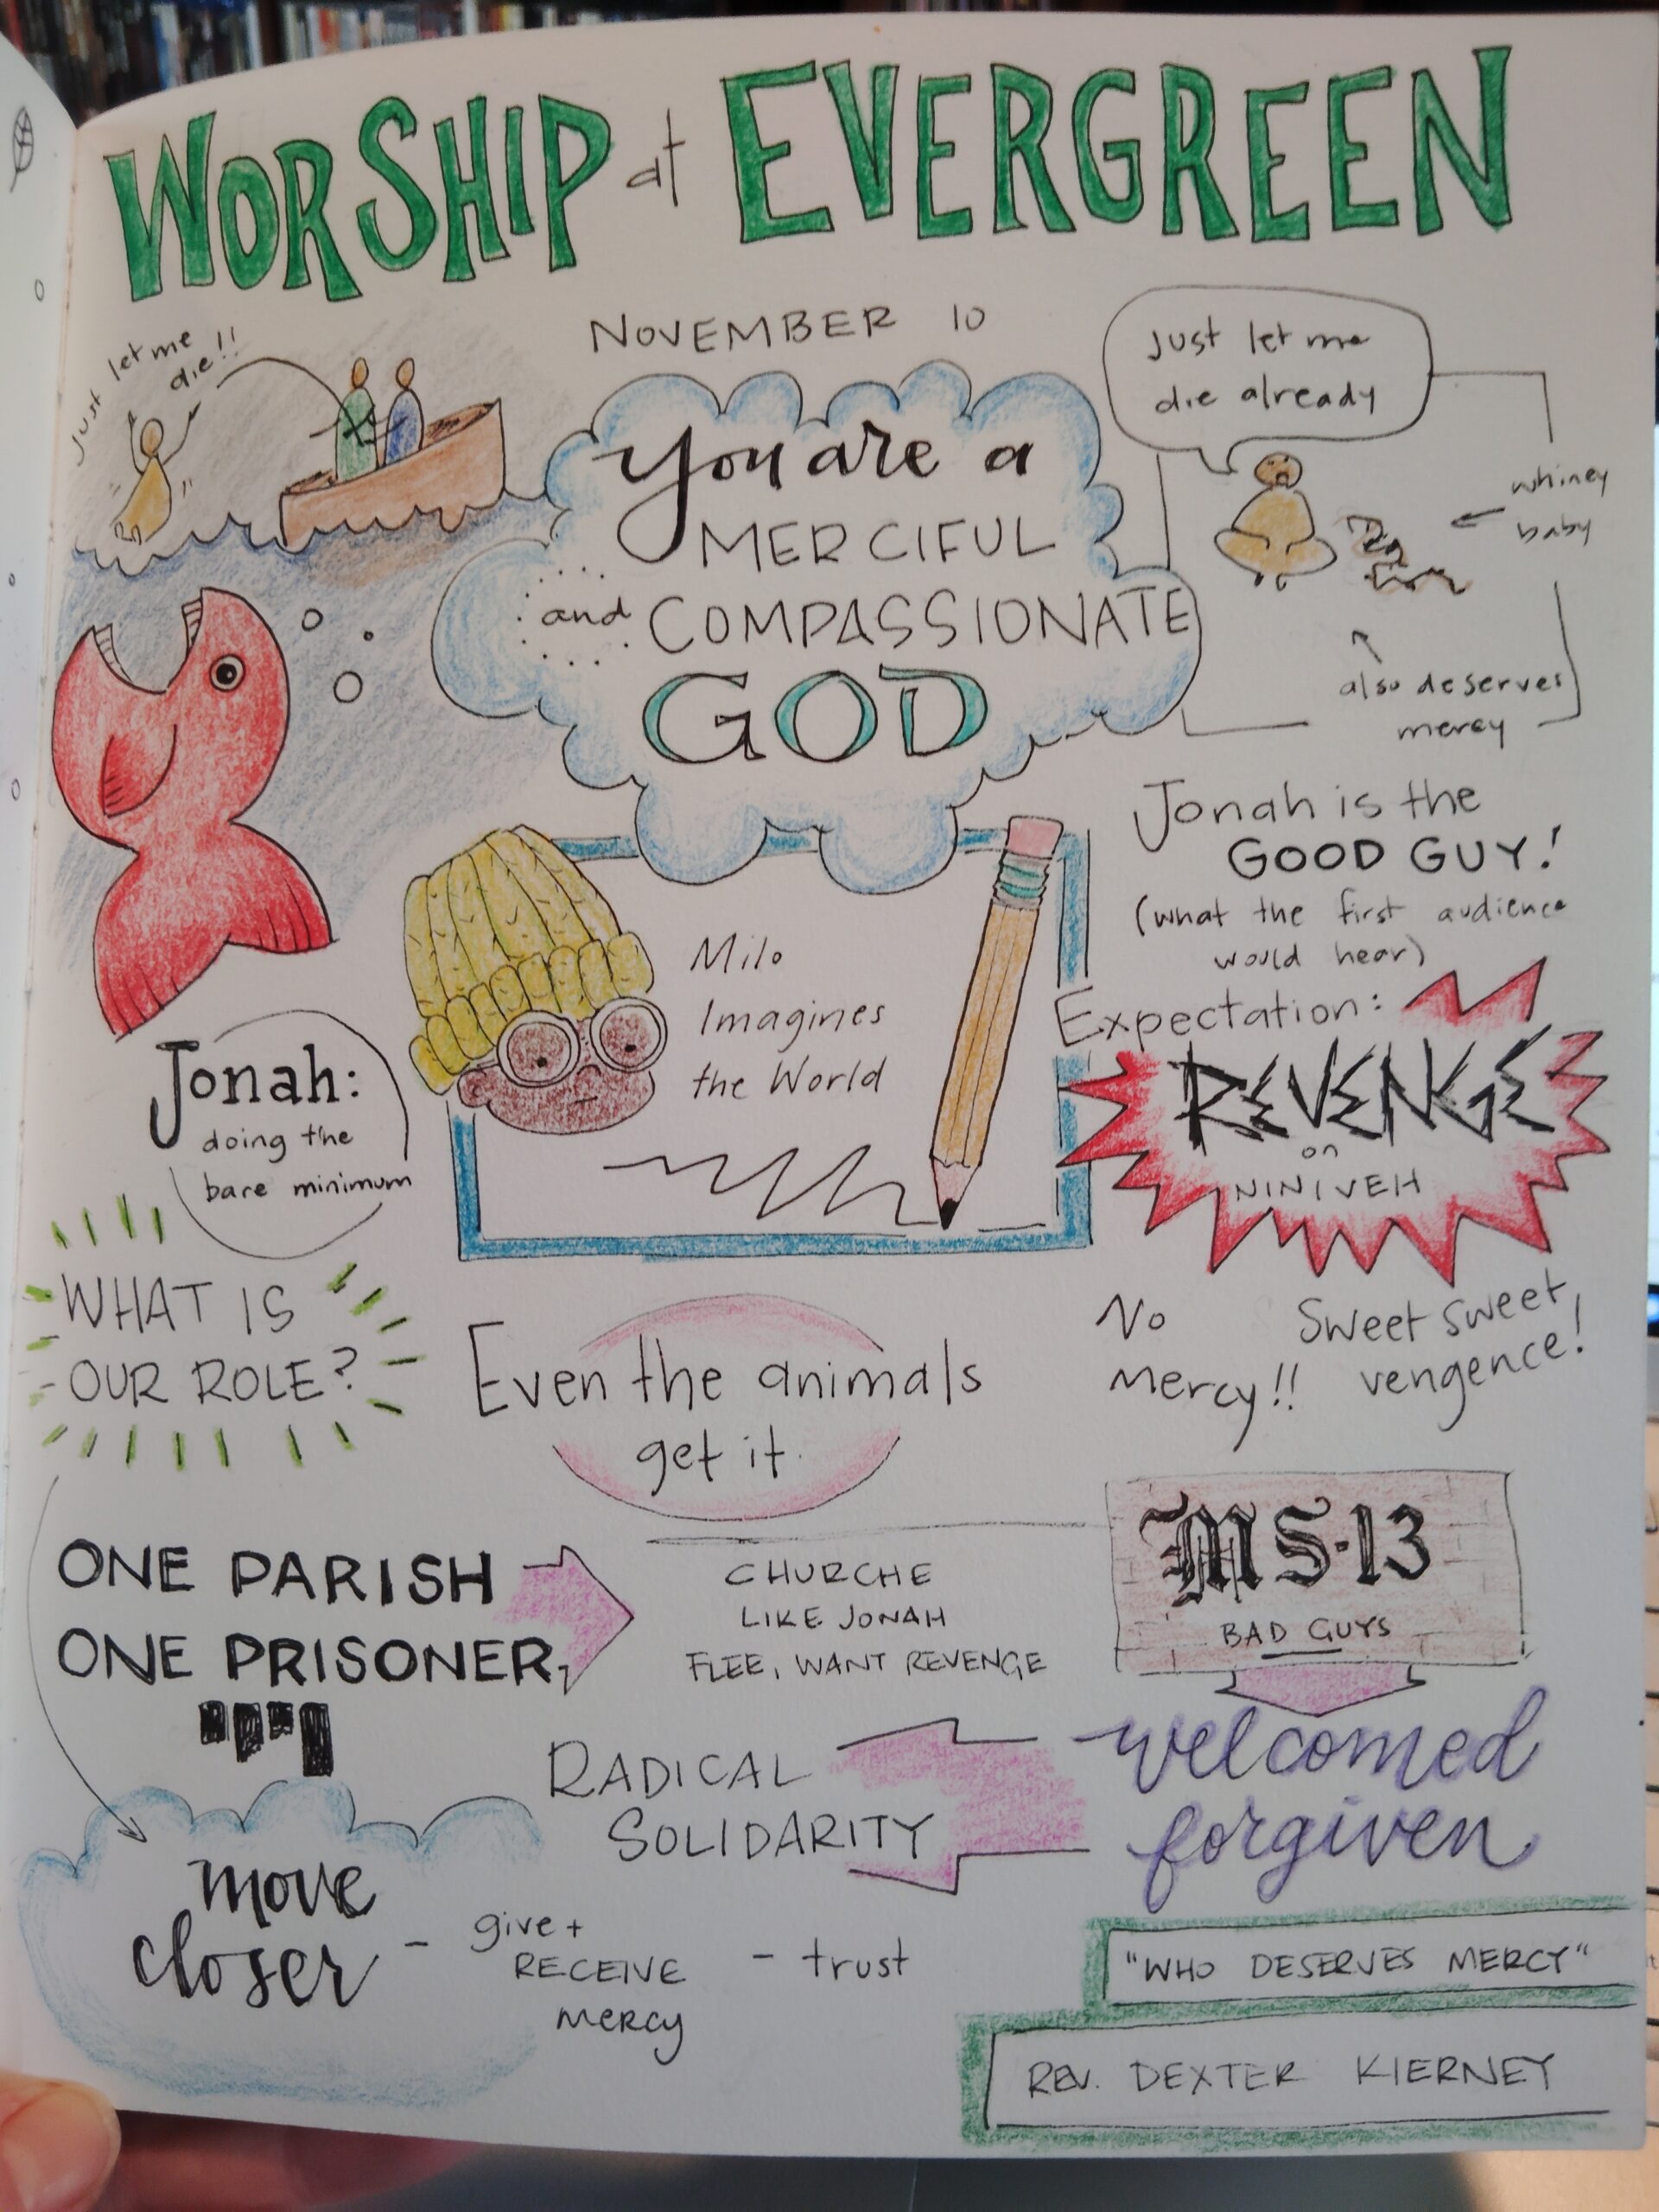 WORSHIP at EVERGREEN
NOVEMBER 10
Just let me
die!!
Just let me
die already
whiney
baby
also deserves
mercy
You are a
MERCIFUL
and COMPASSIONATE
GOD
Jonah is the
GOOD GUY!
(what the first audience
would hear)
Milo
Imagines
the World
Expectation:
REVENGE
on
NINIVEH
Jonah:
doing the
bare minimum
No
Mercy!!
Sweet sweet
vengence!
WHAT IS
OUR ROLE?
Even the animals
get it.
ONE PARISH
ONE PRISONER,
CHURCHE
LIKE JONAH
FLEE, WANT REVENGE
MS-13
BAD GUYS
welcomed
forgiven
RADICAL
SOLIDARITY
move
closer
- give +
RECEIVE
mercy
- trust
"WHO DESERVES MERCY"
REV. DEXTER KIERNEY